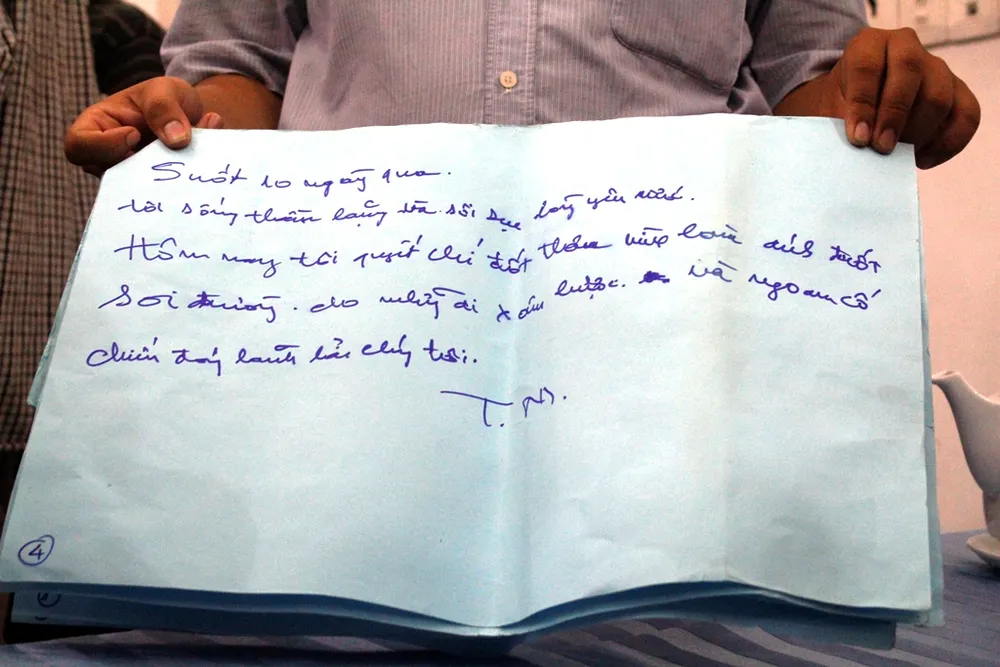 Suốt 10 ngày qua.
tôi sống thầm lặng và sôi sục lòng yêu nước.
Hôm nay tôi quyết chí đốt thân mình làm ánh đuốc
soi đường. cho những ai xâm lược. và ngoan cố
chiếm đóng lãnh hải chúng tôi.
T.
4